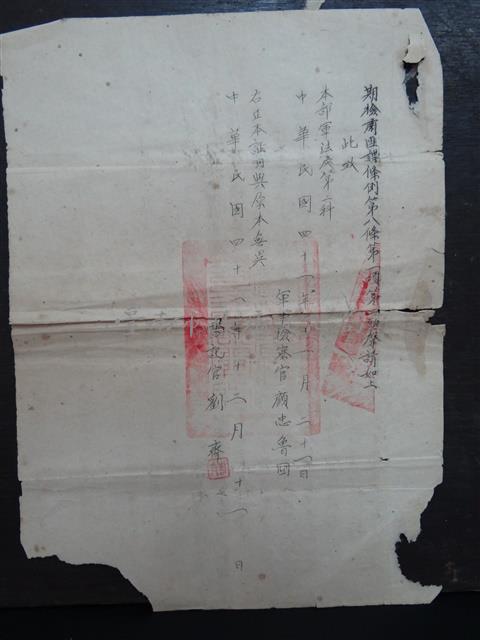 期檢肅匪諜條例第八條第一項第 款聲請如上
此致
本部軍法處第二科
中華民國四十一年十一月二十一日
軍事檢察官顧忠魯
右正本証明與原本無異
中華民國四十一年十二月十一日
書記官劉齊